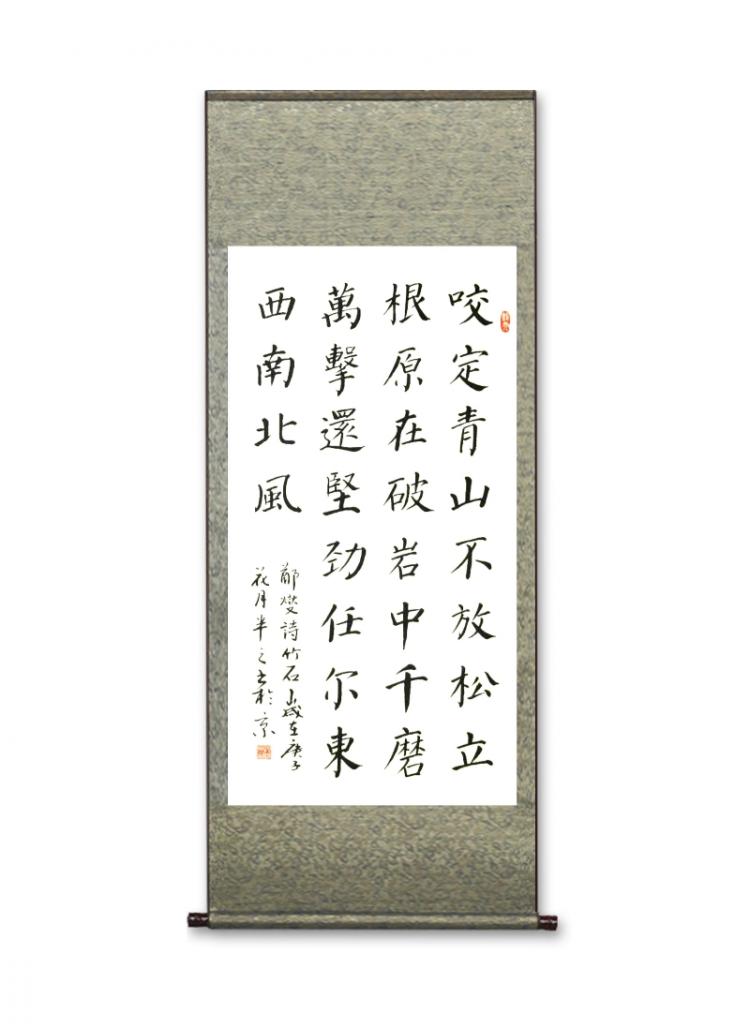 咬定青山不放松立
根原在破岩中千磨
萬擊還堅劲任尔東
西南北風
鄭燮詩竹石歲在庚子
花月半之书於京